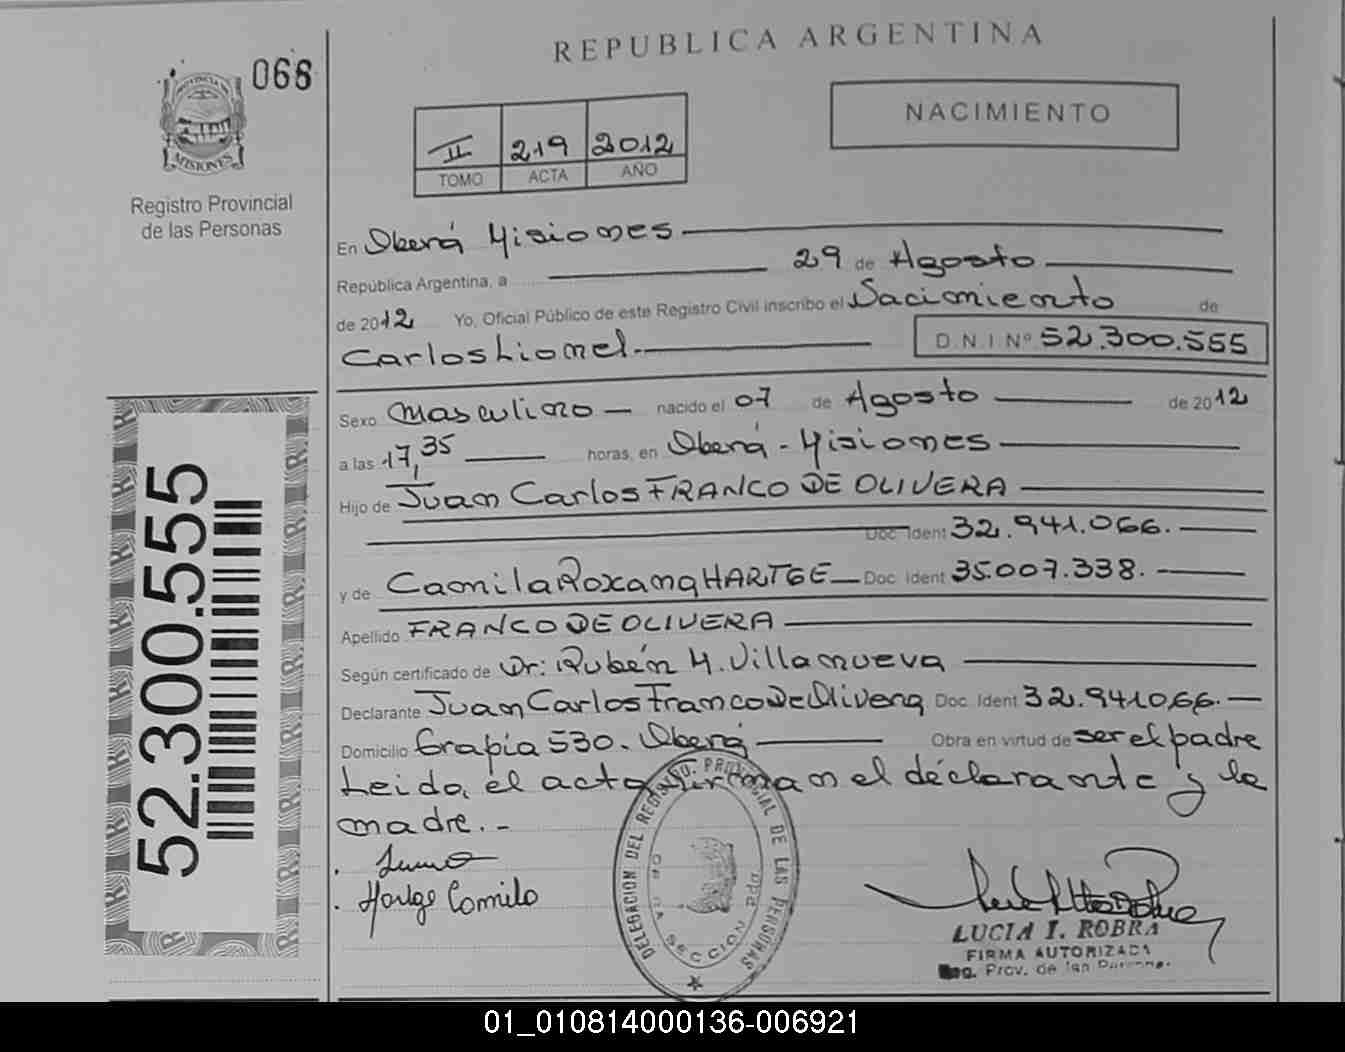 REPUBLICA ARGENTINA
066
NACIMIENTO
II 219 2012
TOMO ACTA AÑO
MISIONES
Registro Provincial
de las Personas
En Oberá Misiones
República Argentina, a 29 de Agosto
de 2012 Yo, Oficial Público de este Registro Civil inscribo el Nacimiento de
Carlos Lionel. D.N.I Nº 52.300.555
Sexo Masculino nacido el 07 de Agosto de 2012
a las 17,35 horas, en Oberá - Misiones
Hijo de Juan Carlos FRANCO DE OLIVERA
Doc Ident 32.941.066.
y de Camila Roxana HARTGE Doc Ident 35.007.338.
Apellido FRANCO DE OLIVERA
Según certificado de Dr: Rubén M. Villanueva
Declarante Juan Carlos Franco De Olivera Doc Ident 32.941.066.
Domicilio Grapia 530. Oberá Obra en virtud de ser el padre
Leida, el acta firman el declarante y la
madre.-
Hartge Camila
52.300.555
DELEGACION DEL REGISTRO PROVINCIAL DE LAS PERSONAS
SECCION
LUCIA I. ROBRA
FIRMA AUTORIZADA
Reg. Prov. de las Personas
01_010814000136-006921